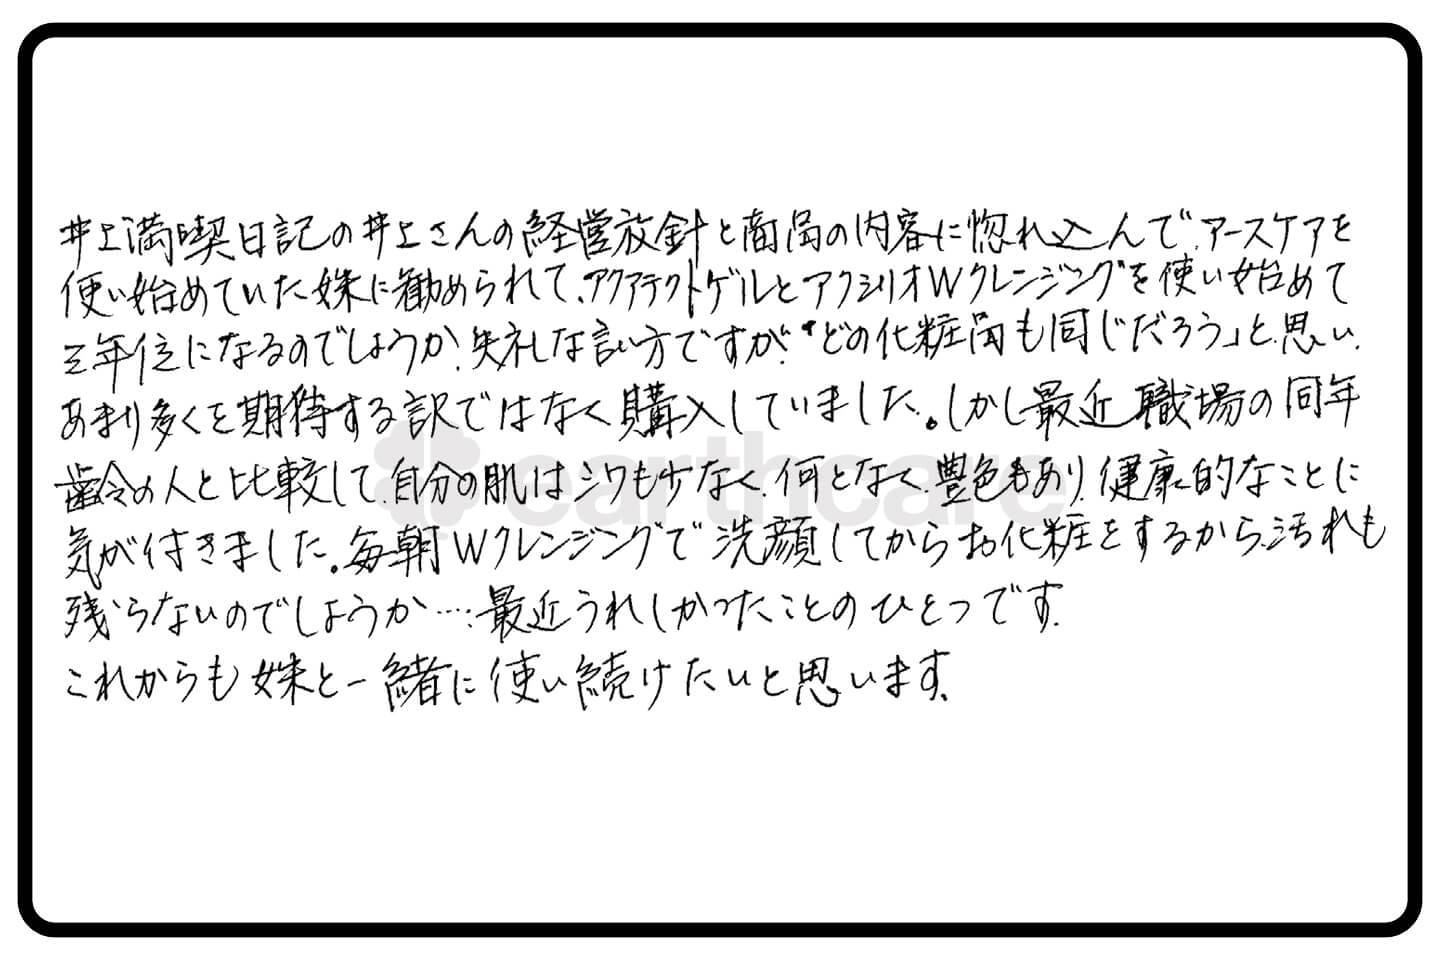 井上満喫日記の井上さんの経営放針と商品の内容に惚れ込んで、アースケアを
使い始めていた妹に勧められて、アクアテクトゲルとアクシリオWクレンジングを使い始めて
三年位になるのでしょうか、失礼な言い方ですが、“どの化粧品も同じだろう」と、思い、
あまり多くを期待する訳ではなく購入していました。しかし最近、職場の同年
歯令の人と比較して、自分の肌はシワも少なく、何となく、豊色もあり、健康的なことに
気が付きました。毎朝Wクレンジングで洗顔してからお化粧をするから、汚れも
残らないのでしょうか…。最近うれしかったことのひとつです。
これからも妹と一緒に使い続けたいと思います。
earthcare